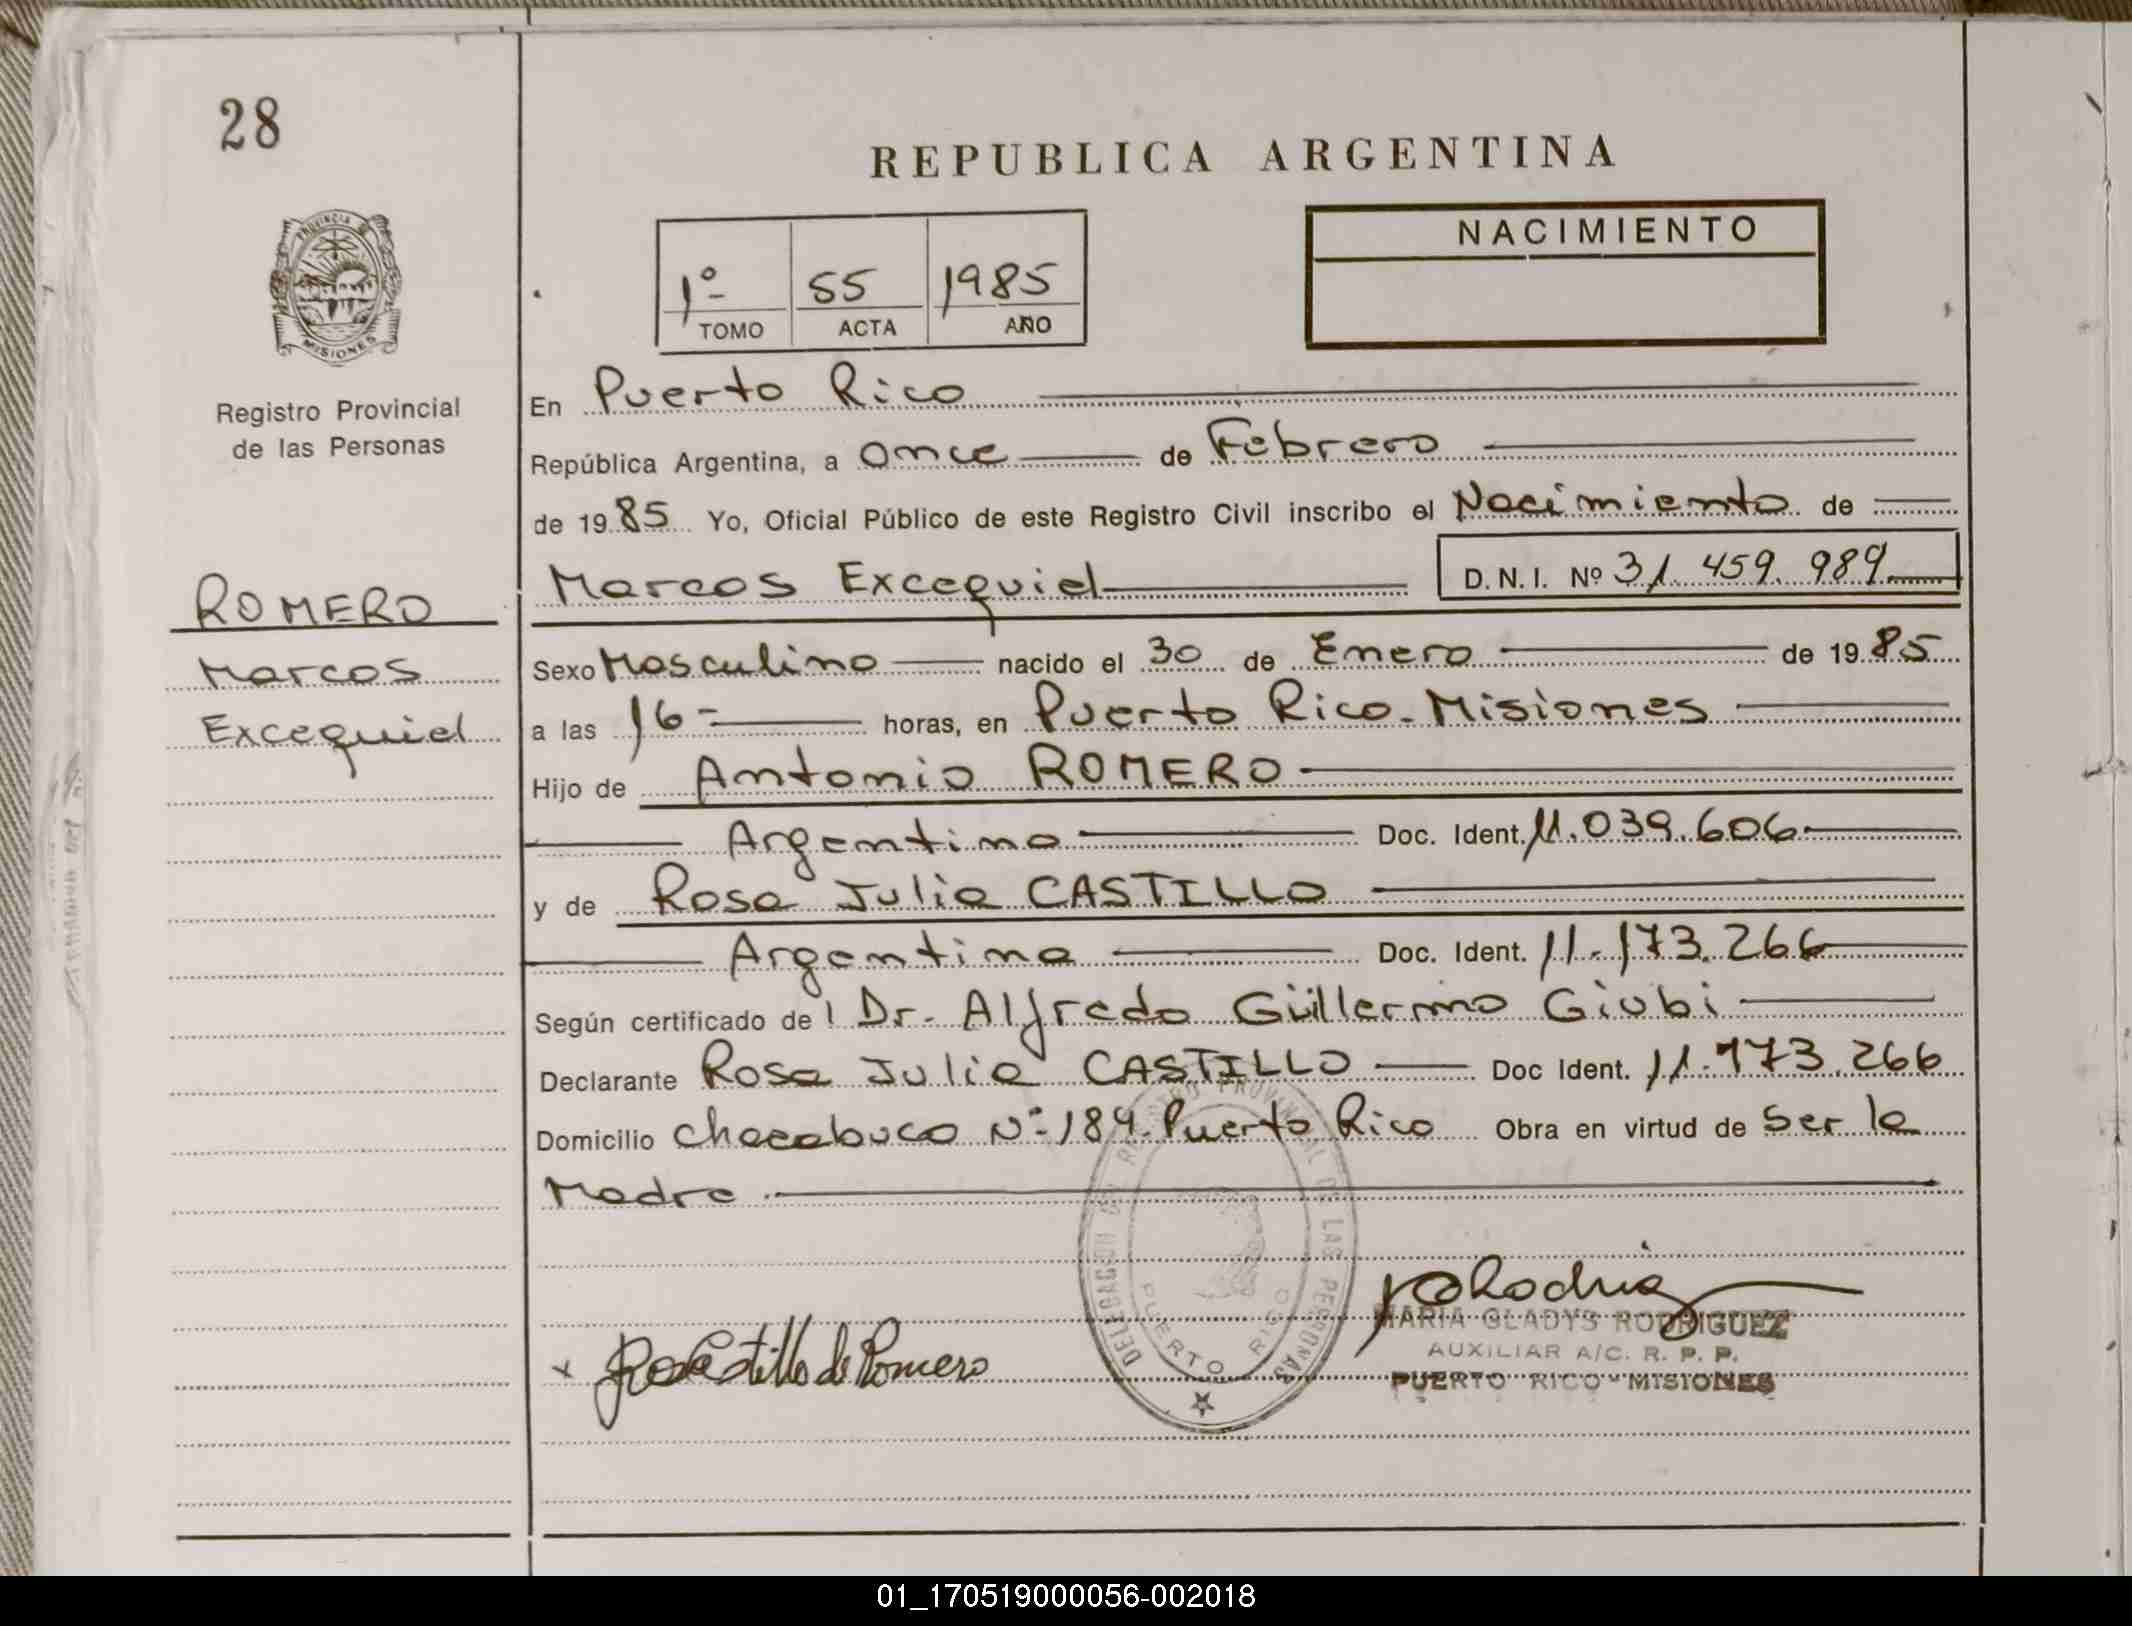 28
REPUBLICA ARGENTINA
PROVINCIA
MISIONES
Registro Provincial
de las Personas
1º 55 1985
TOMO ACTA AÑO
NACIMIENTO
En Puerto Rico
República Argentina, a once de Febrero
de 1985 Yo, Oficial Público de este Registro Civil inscribo el Nacimiento de
Marcos Excequiel D.N.I. Nº 31.459.989
ROMERO
Marcos
Excequiel
Sexo Masculino nacido el 30 de Enero de 1985
a las 16- horas, en Puerto Rico-Misiones
Hijo de Antonio ROMERO
Argentino Doc. Ident. 11.039.606
y de Rosa Julia CASTILLO
Argentina Doc. Ident. 11.173.266
Según certificado de l Dr. Alfredo Güillermo Giubi
Declarante Rosa Julia CASTILLO Doc Ident. 11.173.266
Domicilio Chacabuco Nº 184-Puerto Rico Obra en virtud de ser la
Madre
DELEGACION DEL REGISTRO PROVINCIAL DE LAS PERSONAS
PUERTO RICO
MARIA GLADYS RODRIGUEZ
AUXILIAR A/C. R. P. P.
PUERTO RICO-MISIONES
x Rosa Castillo de Romero
01_170519000056-002018